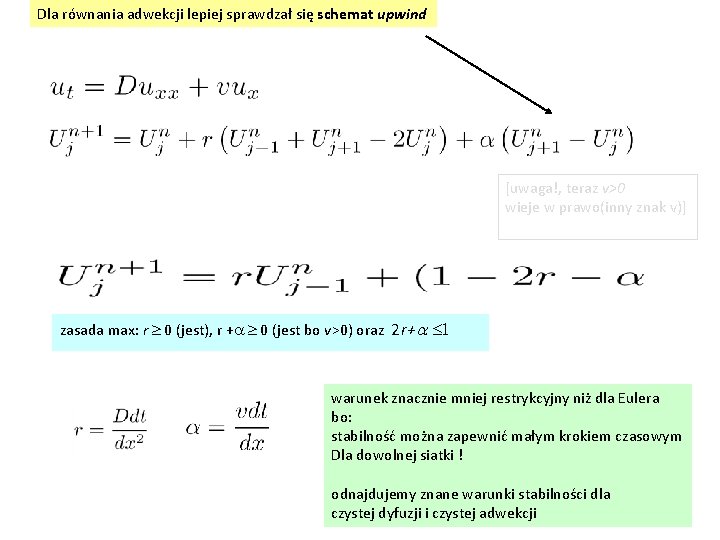 Dla równania adwekcji lepiej sprawdzał się schemat upwind
u_t = Du_{xx} + vu_x
U_j^{n+1} = U_j^n + r (U_{j-1}^n + U_{j+1}^n − 2U_j^n) + α (U_{j+1}^n − U_j^n)
[uwaga!, teraz v>0
wieje w prawo(inny znak v)]
U_j^{n+1} = rU_{j-1}^n + (1 − 2r − α
zasada max: r ≥ 0 (jest), r +α ≥ 0 (jest bo v>0) oraz 2r+α ≤1
r = \frac{Ddt}{dx^2} α = \frac{vdt}{dx}
warunek znacznie mniej restrykcyjny niż dla Eulera
bo:
stabilność można zapewnić małym krokiem czasowym
Dla dowolnej siatki !
odnajdujemy znane warunki stabilności dla
czystej dyfuzji i czystej adwekcji